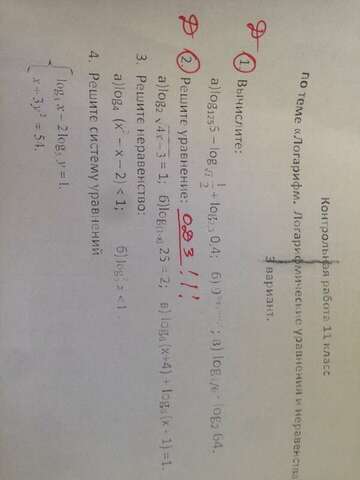 Контрольная работа 11 класс
по теме «Логарифм. Логарифмические уравнения и неравенства
3 вариант.
Д 1. Вычислите:
а)log₁₂₅5 – log√2 1/2 + log 0,4; б) в) log log₂64.
Д 2. Решите уравнение: ОДЗ!!!
а)log₂ √4x – 3 = 1; б)log 25 = 2; в) log₆(x+4) + log₆(x – 1) = 1.
3. Решите неравенство:
а)log₄ (x² – x – 2) < 1; б)log x < 1
4. Решите систему уравнений
log x – 2log y = 1,
x + 3y² = 54.